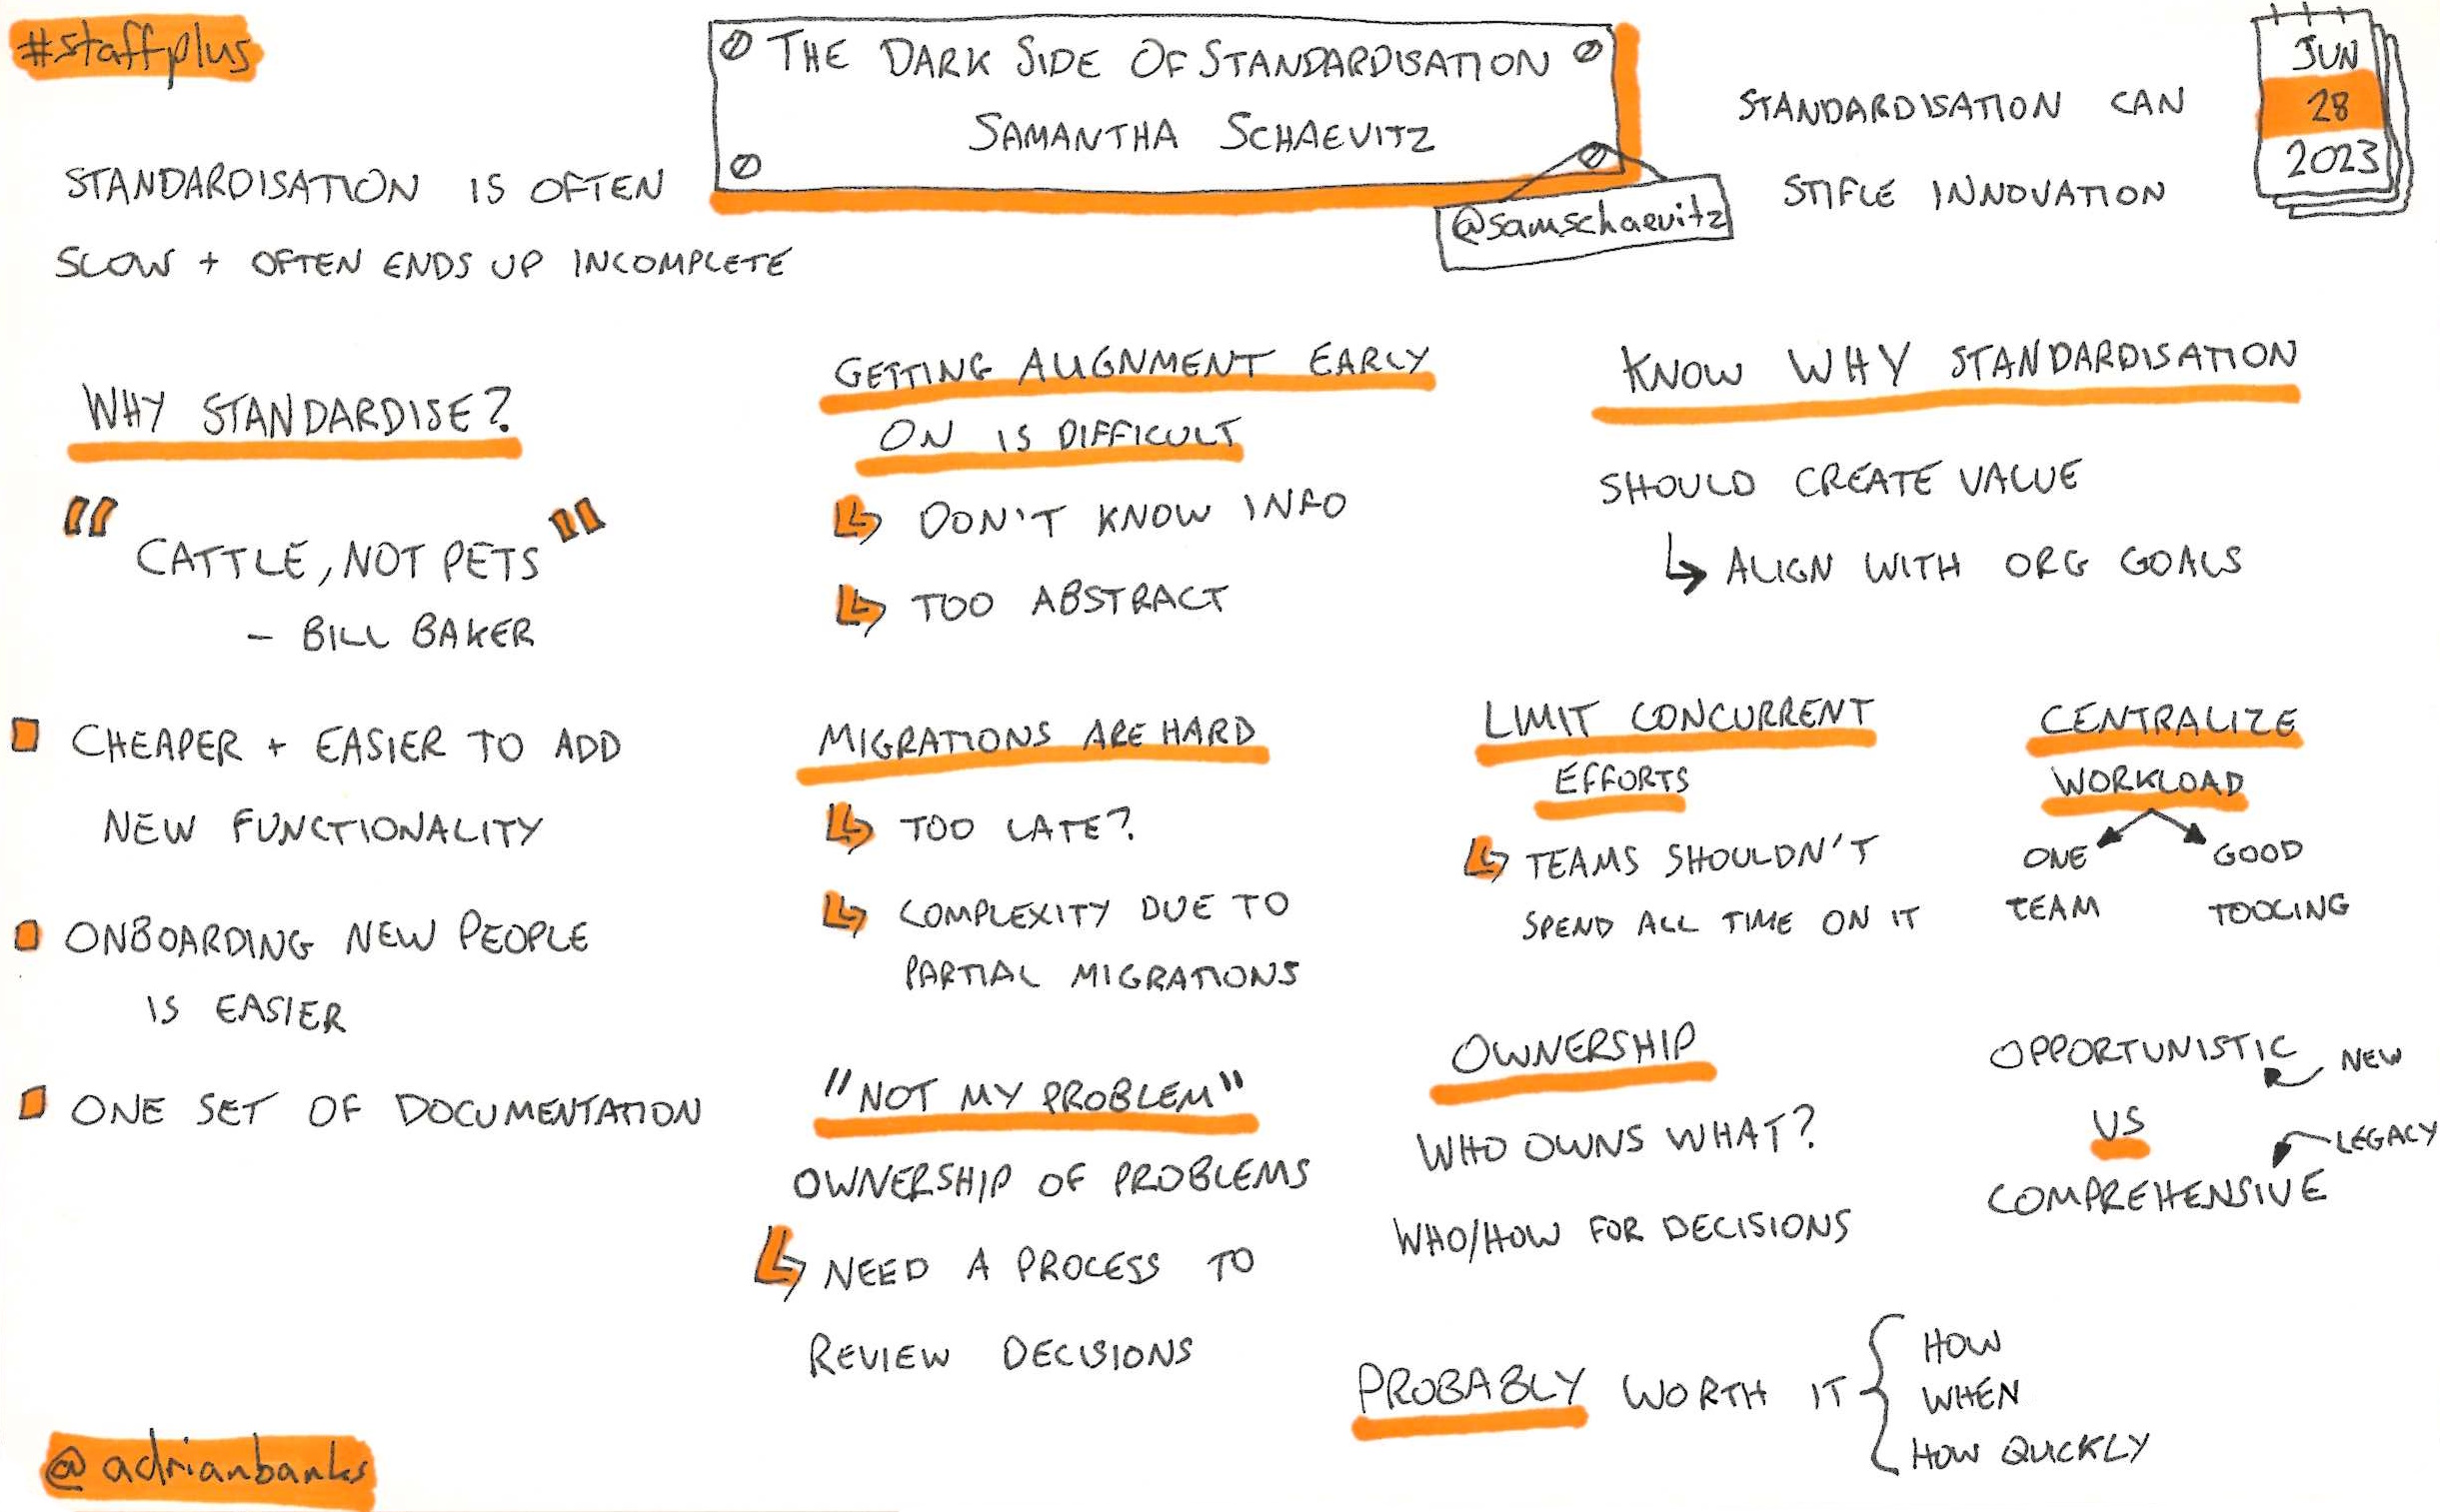 #staffplus
THE DARK SIDE OF STANDARDISATION
SAMANTHA SCHAEVITZ
@samschaevitz
JUN
28
2023
STANDARDISATION IS OFTEN
SLOW + OFTEN ENDS UP INCOMPLETE
STANDARDISATION CAN
STIFLE INNOVATION
WHY STANDARDISE?
"CATTLE, NOT PETS"
- BILL BAKER
CHEAPER + EASIER TO ADD
NEW FUNCTIONALITY
ONBOARDING NEW PEOPLE
IS EASIER
ONE SET OF DOCUMENTATION
GETTING ALIGNMENT EARLY
ON IS DIFFICULT
DON'T KNOW INFO
TOO ABSTRACT
MIGRATIONS ARE HARD
TOO LATE?
COMPLEXITY DUE TO
PARTIAL MIGRATIONS
"NOT MY PROBLEM"
OWNERSHIP OF PROBLEMS
NEED A PROCESS TO
REVIEW DECISIONS
KNOW WHY STANDARDISATION
SHOULD CREATE VALUE
ALIGN WITH ORG GOALS
LIMIT CONCURRENT
EFFORTS
TEAMS SHOULDN'T
SPEND ALL TIME ON IT
CENTRALIZE
WORKLOAD
ONE
TEAM
GOOD
TOOLING
OWNERSHIP
WHO OWNS WHAT?
WHO/HOW FOR DECISIONS
OPPORTUNISTIC
NEW
VS
LEGACY
COMPREHENSIVE
PROBABLY WORTH IT
HOW
WHEN
HOW QUICKLY
@adrianbanks